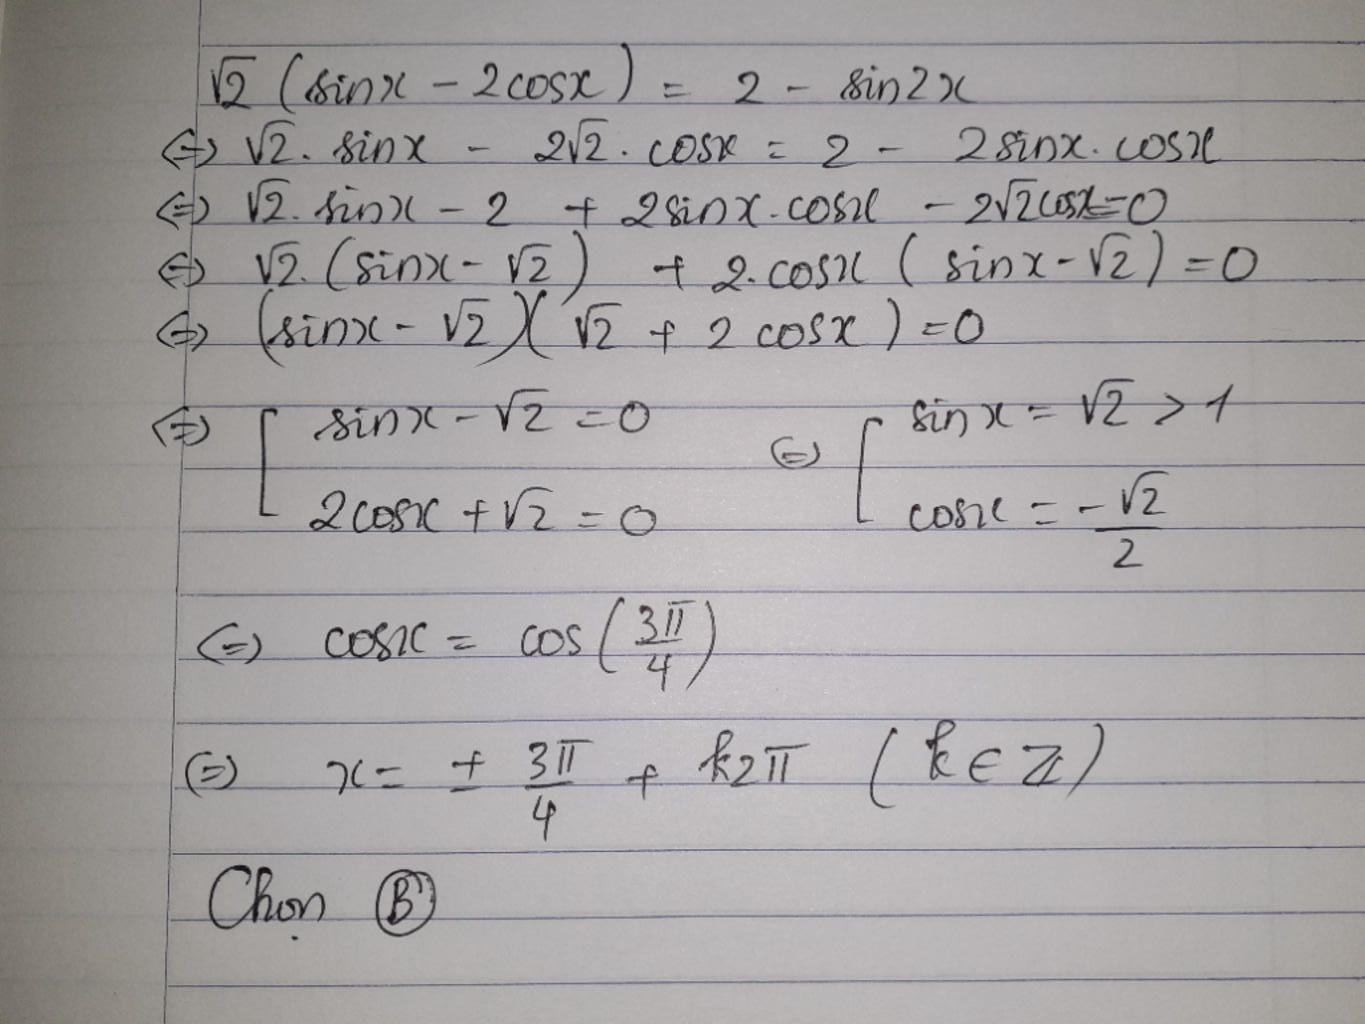 √2 (sinx - 2cosx) = 2 - sin2x
⇔ √2. sinx - 2√2. cosx = 2 - 2sinx. cosx
⇔ √2. sinx - 2 + 2sinx.cosx - 2√2cosx=0
⇔ √2.(sinx-√2) + 2.cosx (sinx-√2)=0
⇔ (sinx-√2)(√2 + 2cosx)=0
⇔ [ sinx-√2=0 ⇔ [ sinx=√2>1
2cosx+√2=0 cosx=-√2/2
⇔ cosx= cos(3π/4)
⇔ x= ± 3π/4 + k2π (k∈Z)
Chọn B